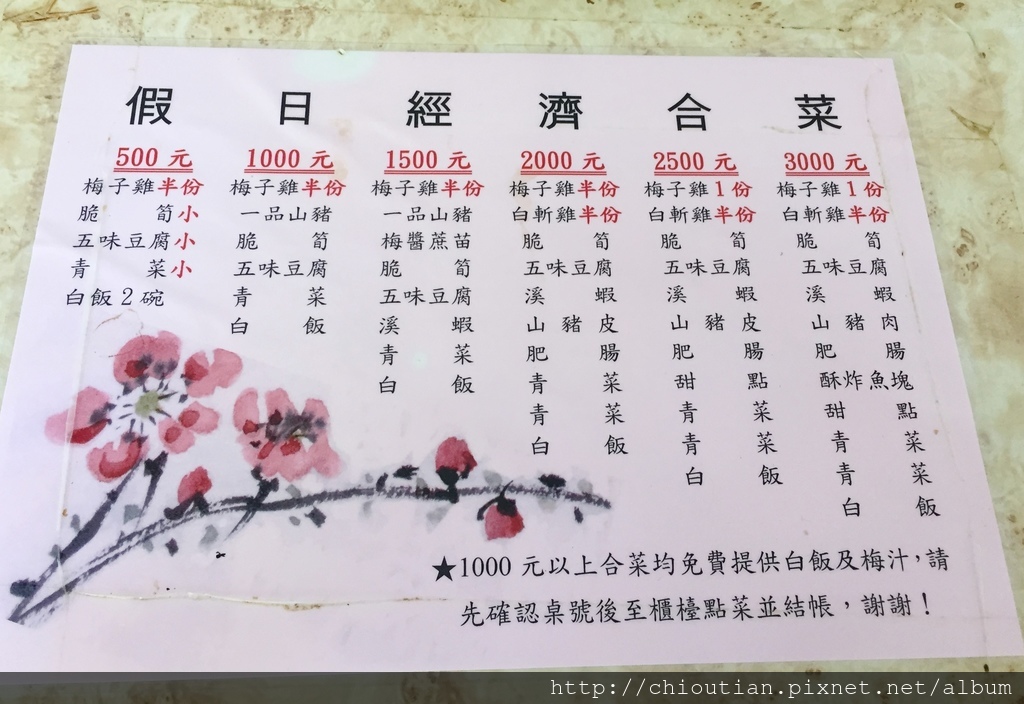 假日經濟合菜
500 元
梅子雞半份
脆筍小
五味豆腐小
青菜小
白飯 2 碗
1000 元
梅子雞半份
一品山豬
脆筍
五味豆腐
青菜
白飯
1500 元
梅子雞半份
一品山豬
梅醬蔗苗
脆筍
五味豆腐
溪蝦
青菜
白飯
2000 元
梅子雞半份
白斬雞半份
脆筍
五味豆腐
溪蝦
山豬皮
肥腸
青菜
青菜
白飯
2500 元
梅子雞 1 份
白斬雞半份
脆筍
五味豆腐
溪蝦
山豬皮
肥腸
甜點
青菜
青菜
白飯
3000 元
梅子雞 1 份
白斬雞半份
脆筍
五味豆腐
溪蝦
山豬肉
肥腸
酥炸魚塊
甜點
青菜
青菜
白飯
★1000 元以上合菜均免費提供白飯及梅汁，請
先確認桌號後至櫃檯點菜並結帳，謝謝！
http://chioutian.pixnet.net/album